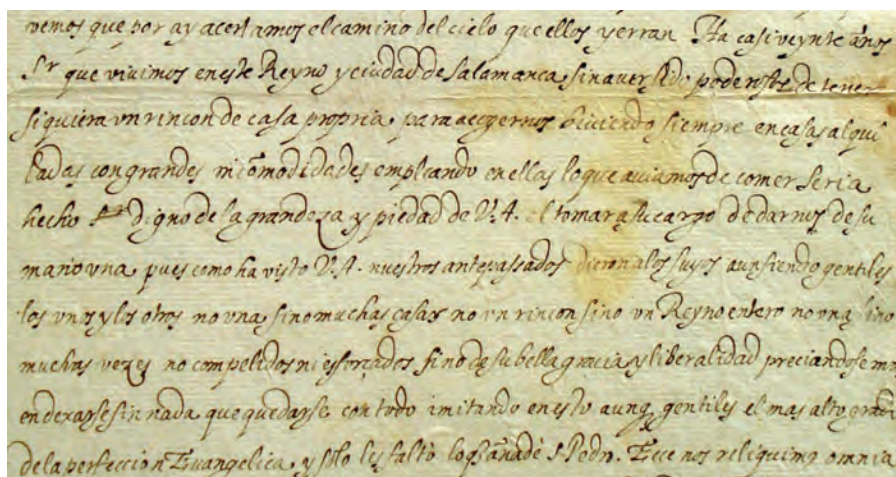 vemos que por ay acertamos el camino del cielo que ellos yerran Ha casi veynte años
Sr que viuimos en este Reyno y ciudad de Salamanca, sin auer sido poderosos de tener
siquiera vn rincon de casa propria, para acogernos biuiendo siempre en casas alqui
ladas con grandes incomodidades empleando en ellas lo que auiamos de comer seria
hecho digno de la grandeza y piedad de V. A. el tomar a su cargo de darnos de su
mano vna pues como ha visto V. A. nuestros antepassados dieron a los suyos aun siendo gentiles
los vnos y los otros no vna, sino muchas casas no vn rincon sino vn Reyno entero no vna, sino
muchas vezes no compelidos ni esforçados sino de su bella gracia y liberalidad preciandose mas
en dexarse sin nada que quedarse con todo imitando en esto aunq gentiles el mas alto grado
de la perfeccion Euangelica, y solo les faltò lo q añade S. Pedro. Ecce nos reliquimus omnia